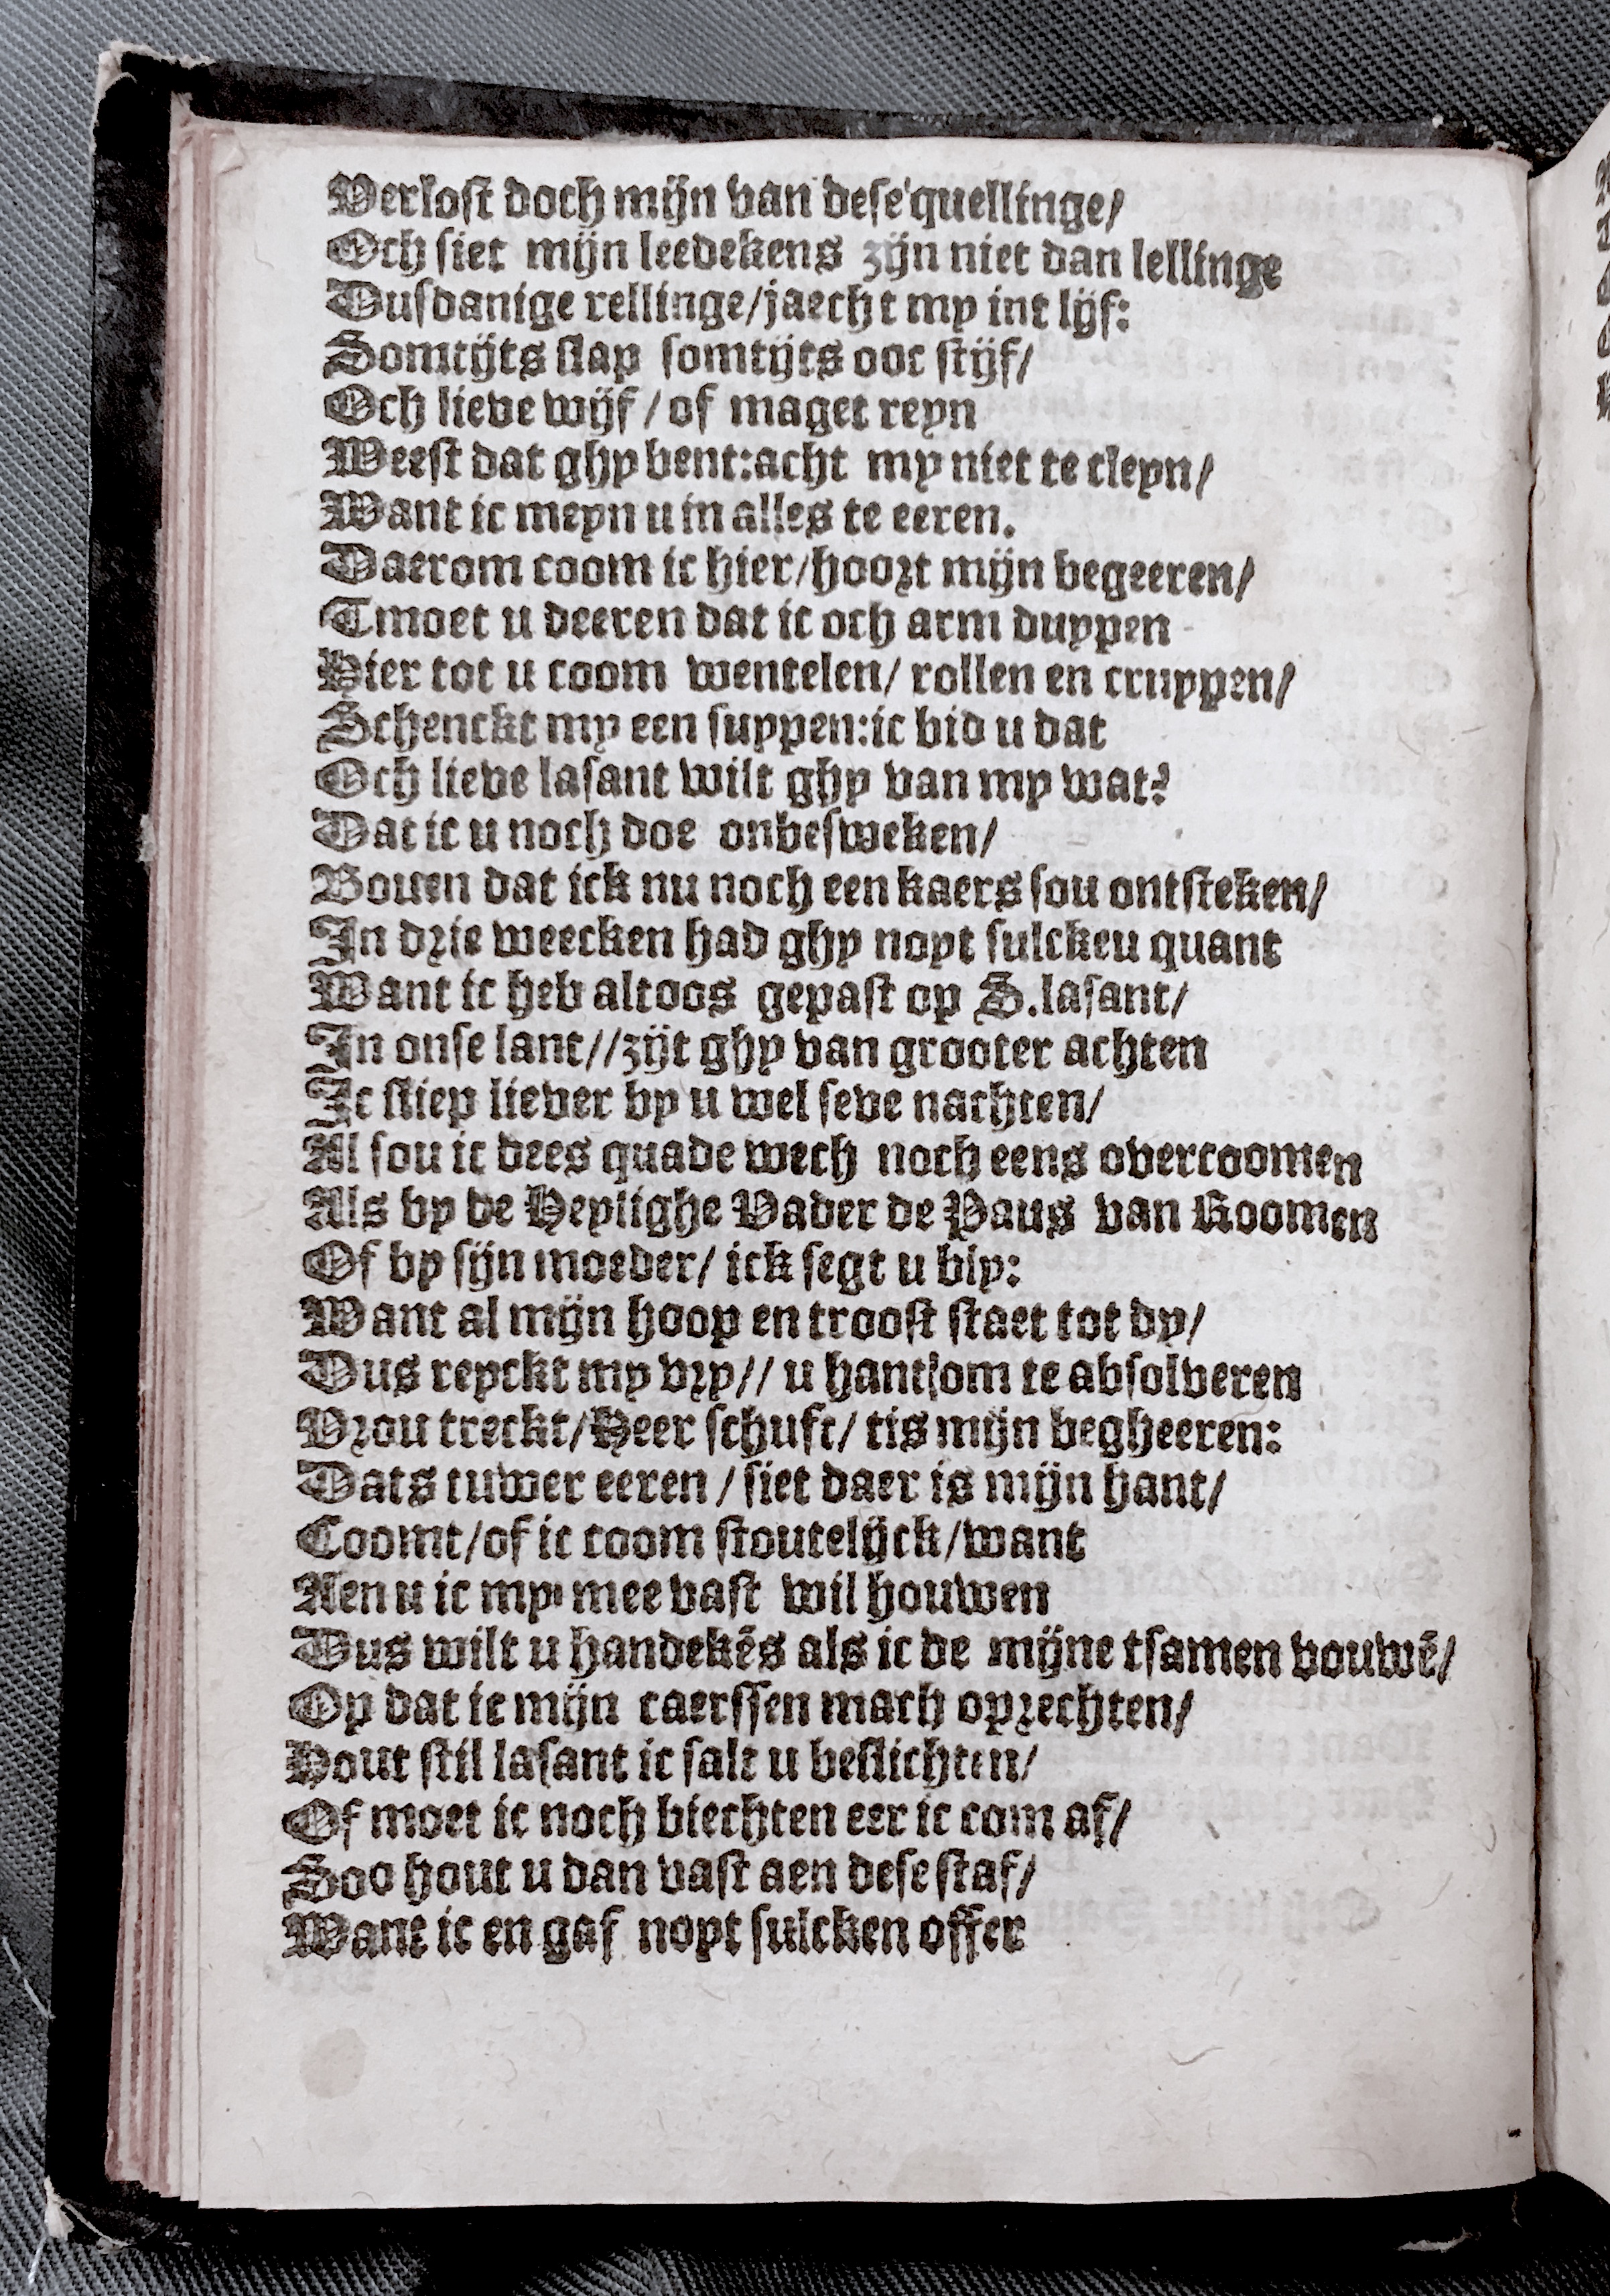 Verlost doch mijn van dese quellinge/
Och siet mijn leedekens zijn niet dan lellinge
Dusdanige rellinge/jaecht my int lijf:
Somtijts slap somtijts ooc stijf/
Och lieve wijf / of maget reyn
Weest dat ghy bent:acht my niet te cleyn/
Want ic meyn u in alles te eeren.
Daerom coom ic hier/hoort mijn begeeren/
Tmoet u deeren dat ic och arm duypen
Hier tot u coom wentelen/ rollen en cruypen/
Schenckt my een suypen:ic bid u dat
Och lieve lasant wilt ghy van my wat?
Dat ic u noch doe onbesweken/
Bouen dat ick nu noch een kaers sou ontsteken/
In drie weecken had ghy noyt sulckeu quant
Want ic heb altoos gepast op S.lasant/
In onse lant//zijt ghy van grooter achten
Ic sliep liever by u wel seve nachten/
Al sou ic dees quade wech noch eens overcoomen
Als by de Heylighe Vader de Paus van Roomen
Of by sijn moeder/ ick segt u bly:
Want al mijn hoop en troost staet tot dy/
Dus reyckt my vry// u hant som te absolveren
Vrou treckt/Heer schuft/ tis mijn begheeren:
Dats tuwer eeren / siet daer is mijn hant/
Coomt/of ic coom stoutelijck/want
Aen u ic my mee vast wil houwen
Dus wilt u handekēs als ic de mijne tsamen vouwē/
Op dat ic mijn caerssen mach oprechten/
Hout stil lasant ic salt u beslichten/
Of moet ic noch biechten eer ic com af/
Soo hout u dan vast aen dese staf/
Want ic en gaf noyt sulcken offer